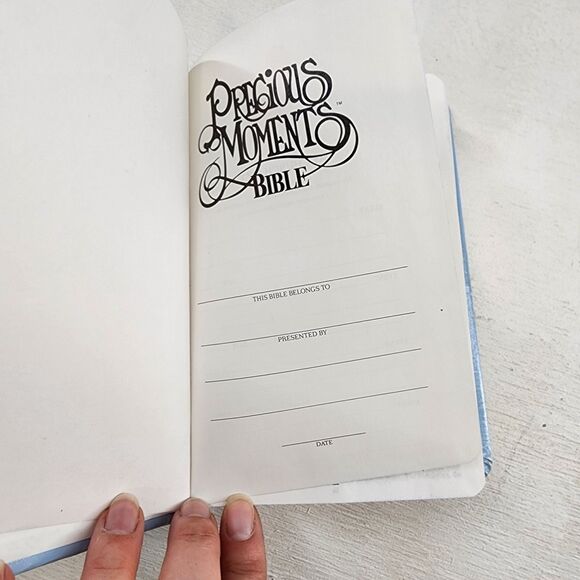 PRECIOUS
MOMENTS™
BIBLE
THIS BIBLE BELONGS TO
PRESENTED BY
DATE